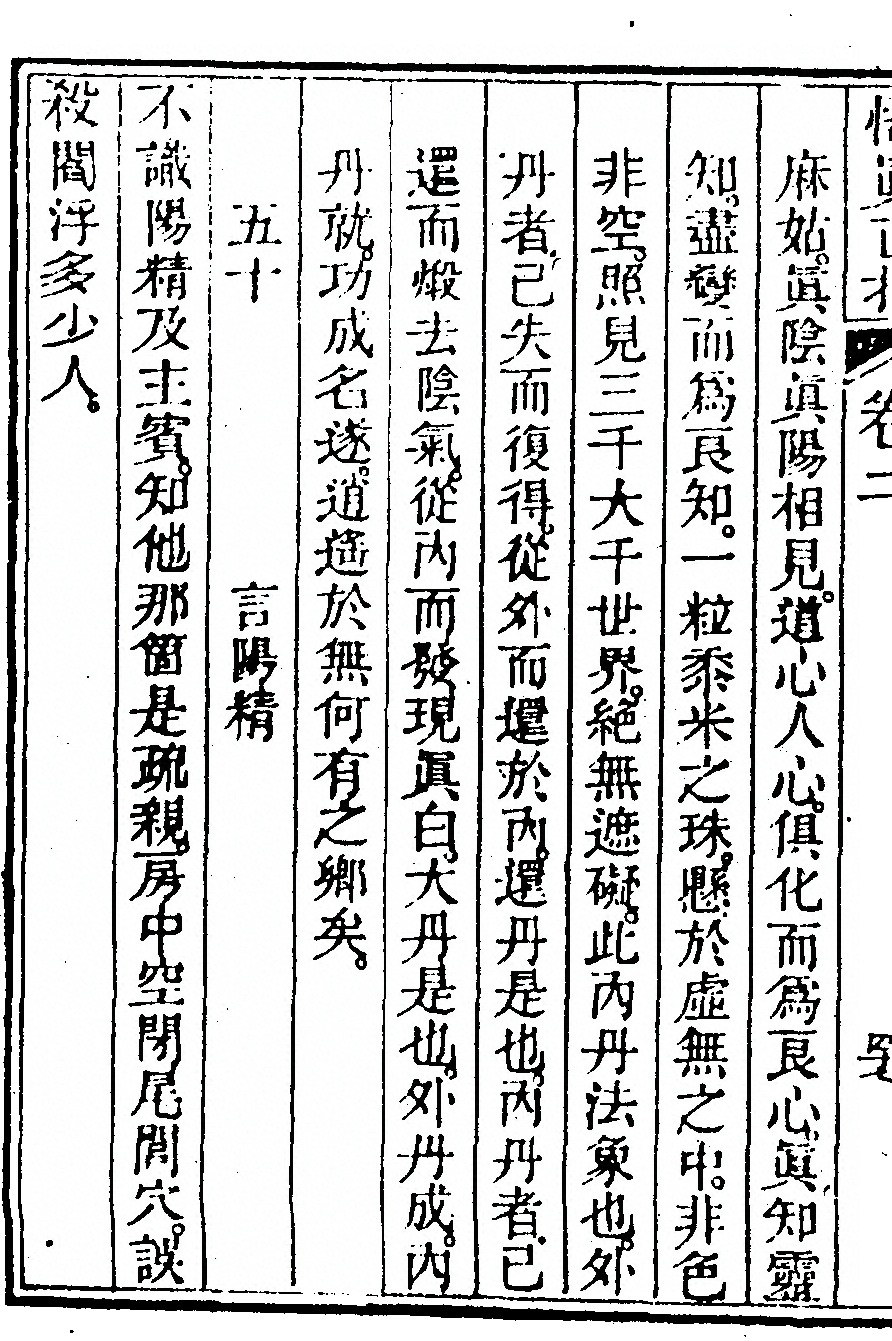 卷二
麻姑。眞陰眞陽相見。道心人心。俱化而爲良心。眞知靈
知。盡變而爲良知。一粒黍米之珠。懸於虛無之中。非色
非空。照見三千大千世界。絕無遮礙。此內丹法象也。外
丹者。已失而復得。從外而還於內。還丹是也。內丹者。已
還而煅去陰氣。從內而發現眞白。大丹是也。外丹成。內
丹就。功成名遂。逍遙於無何有之鄉矣。
五十　言陽精
不識陽精及主賓。知他那箇是疏親。房中空閉尾閭穴。誤
殺閻浮多少人。